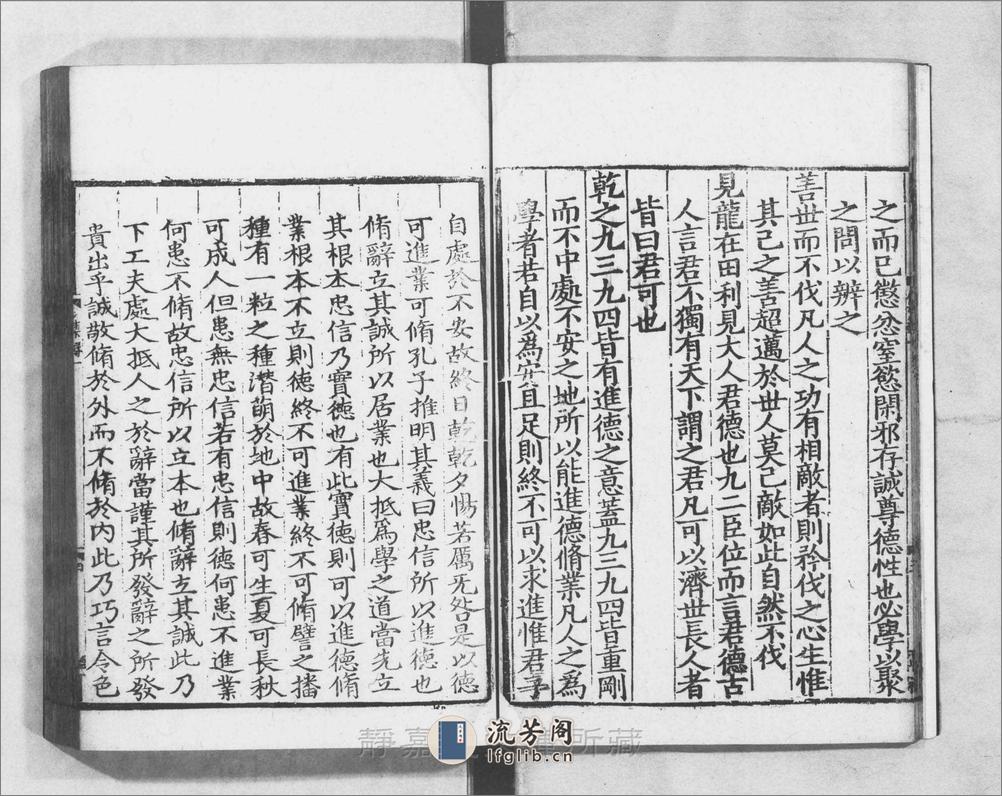 之而已懲忿窒慾閑邪存誠尊德性也必學以聚
之問以辨之
善世而不伐凡人之功有相敵者則矜伐之心生惟
其己之善超邁於世人莫己敵如此自然不伐
見龍在田利見大人君德也九二臣位而言君德古
人言君不獨有天下謂之君凡可以濟世長人者
皆曰君可也
乾之九三九四皆有進德之意蓋九三九四皆重剛
而不中處不安之地所以能進德脩業凡人之為
學者若自以為安且足則終不可以求進惟君子
自處於不安故終日乾乾夕惕若厲无咎是以德
可進業可脩孔子推明其義曰忠信所以進德也
脩辭立其誠所以居業也大抵為學之道當先立
其根本忠信乃實德也有此實德則可以進德脩
業根本不立則德終不可進業終不可脩譬之播
種有一粒之種潛萌於地中故春可生夏可長秋
可成人但患無忠信若有忠信則德何患不進業
何患不脩故忠信所以立本也脩辭立其誠此乃
下工夫處大抵人之於辭當謹其所發辭之所發
貴出乎誠敬脩於外而不脩於内此乃巧言令色
靜嘉 所藏
流芳阁
lfglib.cn